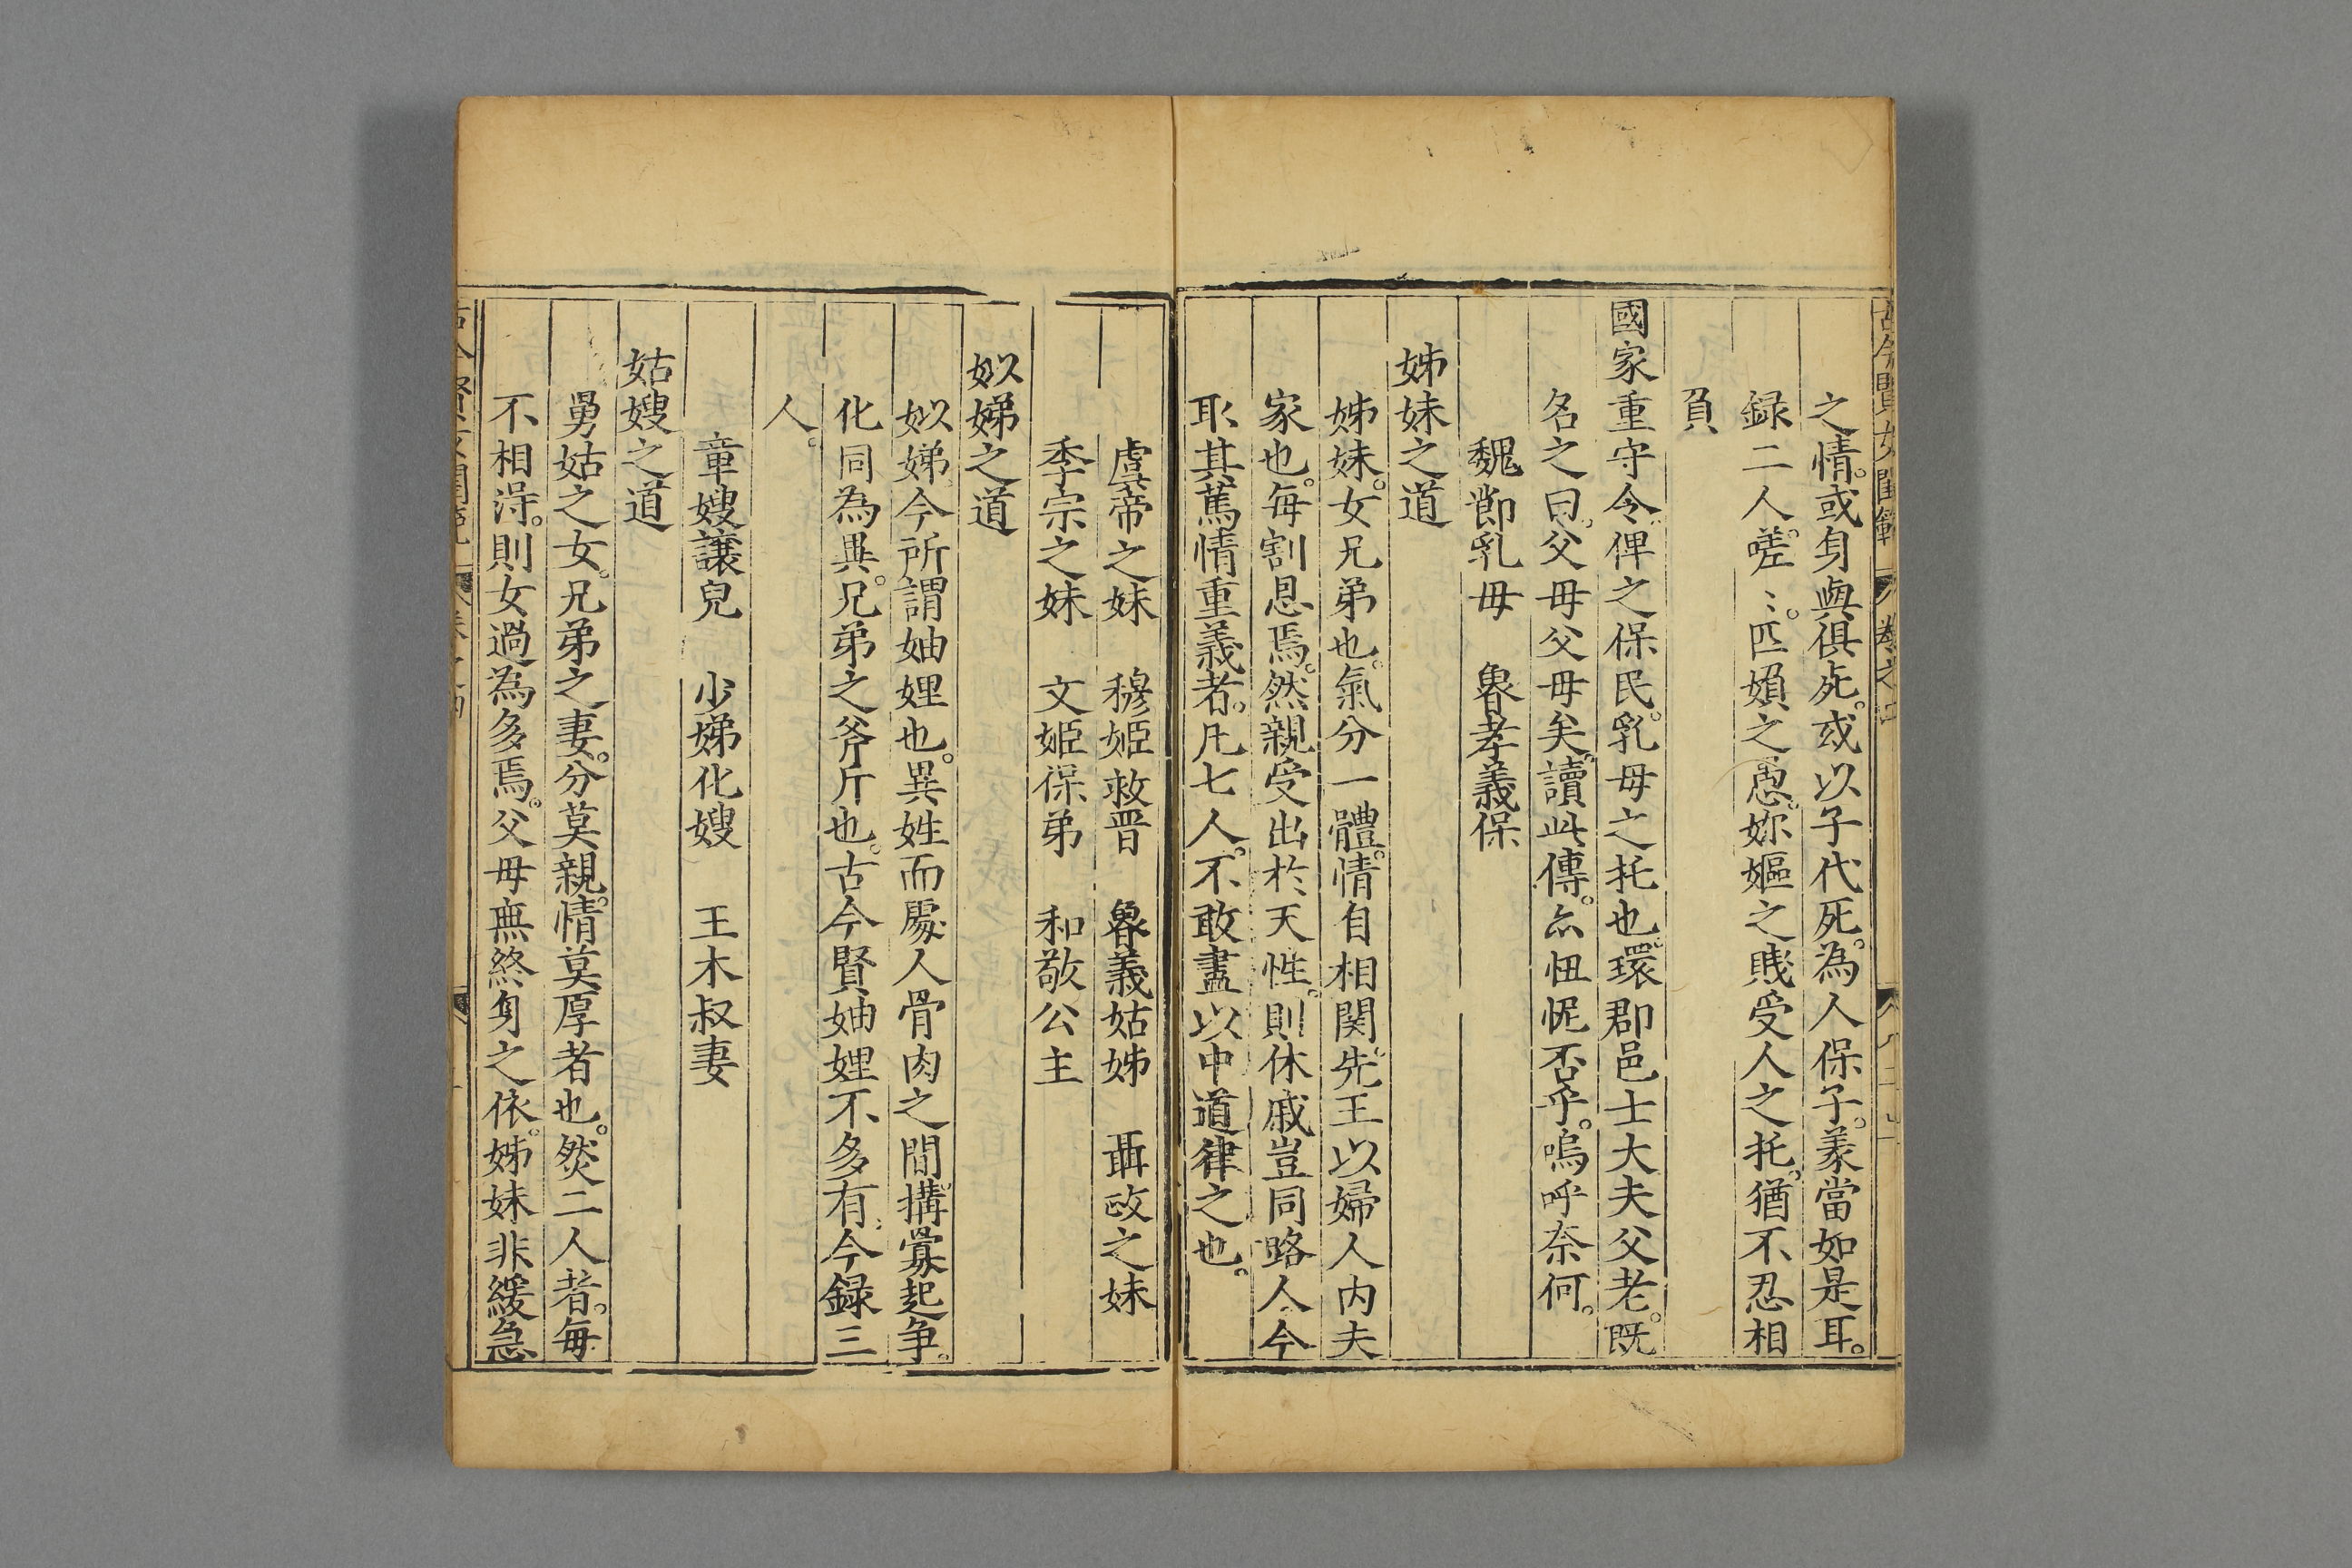 之情。或身與俱死。或以子代死。為人保子。義當如是耳。
録二人嗟〻。匹媍之愚。妳嫗之賤。受人之托。猶不忍相
負
國家重守令。俾之保民。乳母之托也。環郡邑士大夫父老。既
名之曰。父母父母矣。讀此傳。亦忸怩否乎。嗚呼奈何。
魏節乳母　魯孝義保
姊妹之道
姊妹。女兄弟也。氣分一體。情自相関。先王以婦人內夫
家也。每割恩焉。然親受出於天性。則休戚豈同路人。今
取其篤情重義者。凡七人。不敢盡以中道律之也。
虞帝之妹　穆姬救晋　魯義姑姊　聶政之妹
季宗之妹　文姬保弟　和敬公主
姒娣之道
姒娣今所謂妯娌也。異姓而處人骨肉之間。搆釁起争。
化同為異。兄弟之斧斤也。古今賢妯娌不多有。今録三
人。
章嫂讓兒　少娣化嫂　王木叔妻
姑嫂之道
舅姑之女。兄弟之妻。分莫親。情莫厚者也。然二人者。每
不相得。則女過為多焉。父母無終身之依。姊妹非緩急
古今賢女閨範　卷之四